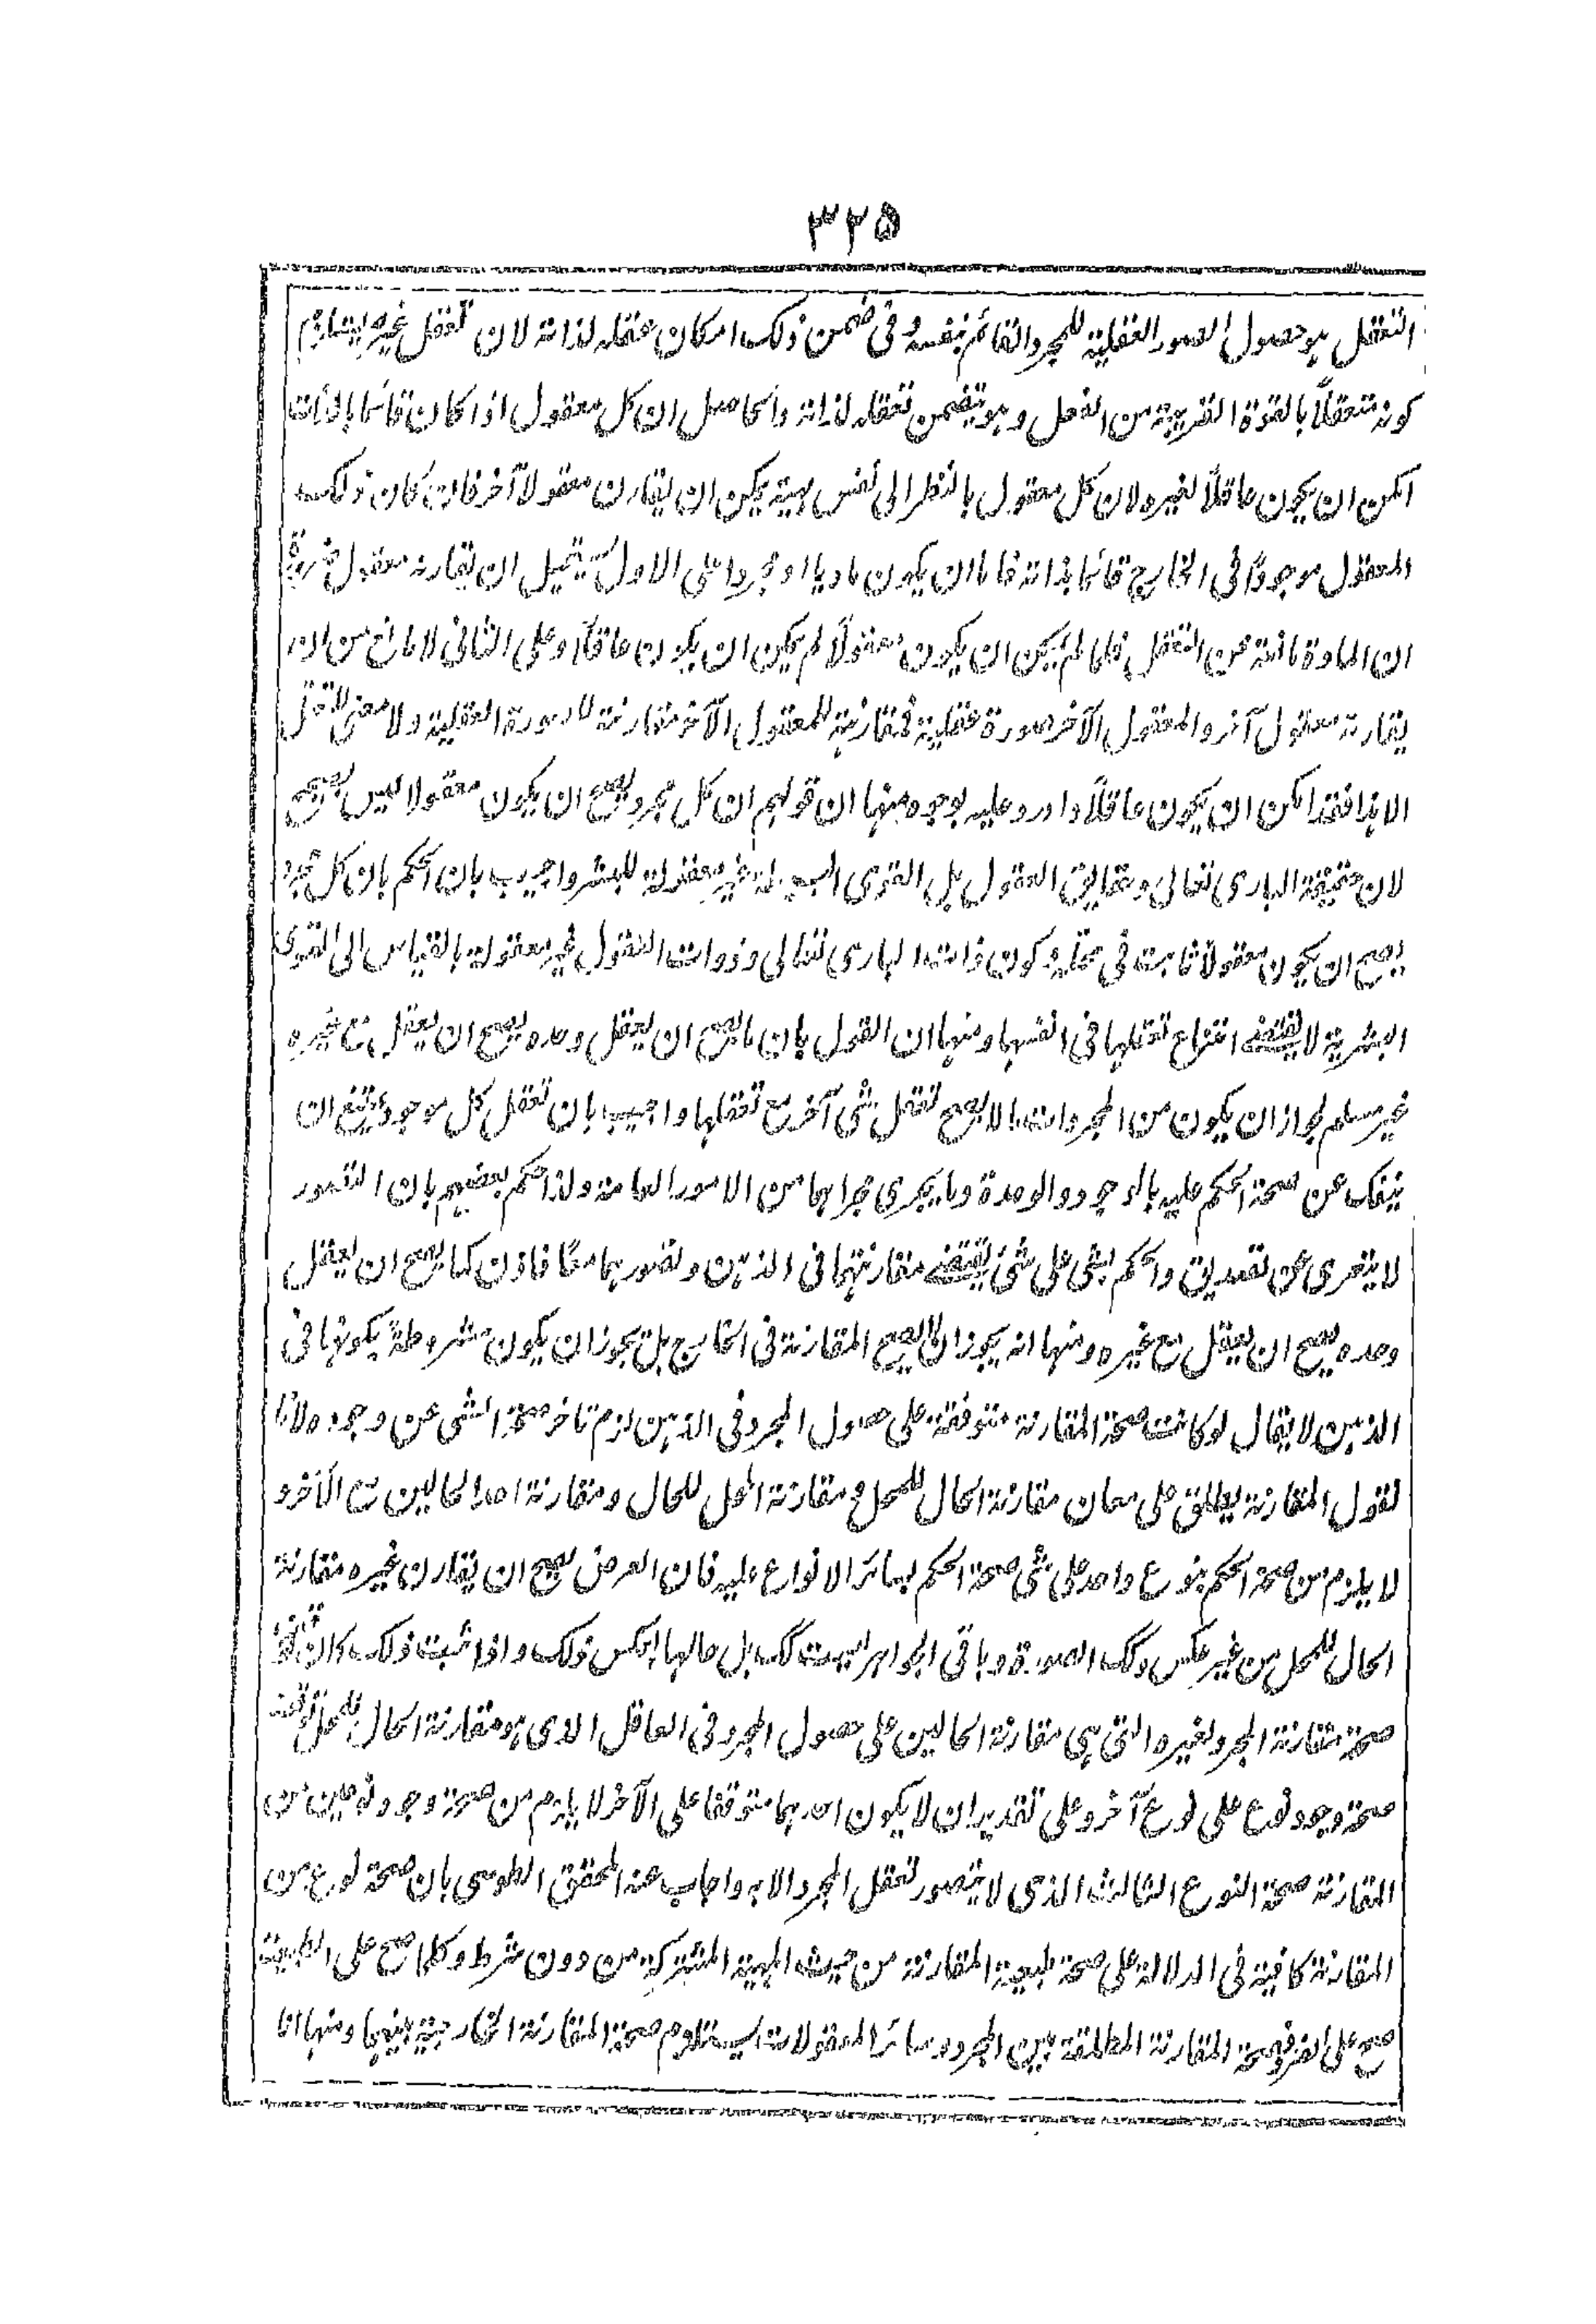 ۳۲۵
التعقل هو حصول الصور العقلية للمجرد القائم بنفسه وفى ضمن ذلك امكان عقله لذاته لان تعقل غيره يستلزم
كونه متعقلاً بالقوة القريبة من الفعل وهو يتضمن تعقله لذاته والحاصل ان كل معقول اذا كان قائما بالذات
امكن ان يكون عاقلاً لغيره لان كل معقول بالنظر الى نفس مهيته يمكن ان يقارن معقولاً آخر فان كان ذلك
المعقول موجوداً فى الخارج قائما بذاته فاما ان يكون ماديا او مجردا على الاول يستحيل ان يقارنه معقول ضرورة
ان المادة مانعة عن التعقل فلما لم يكن ان يكون معقولاً لم يكن ان يكون عاقلاً وعلى الثانى لا مانع من ان
يقارنه معقول آخر والمعقول الآخر صورة عقلية فمقارنته للمعقول الآخر مقارنة للصورة العقلية ولا معنى للتعقل
الا هذا فقد امكن ان يكون عاقلاً واورد عليه بوجوه منها ان قولهم ان كل مجرد يصح ان يكون معقولا ليس بصحيح
لان حقيقة البارى تعالى وحقائق العقول بل القوى البسيطة غير معقولة للبشر واجيب بان الحكم بان كل مجرد
يصح ان يكون معقولاً ثابت فى محله وكون ذات البارى تعالى وذوات العقول غير معقولة بالقياس الى القوى
البشرية لا يقتضى امتناع تعقلها فى انفسها ومنها ان القول بان ما يصح ان يعقل وحده يصح ان يعقل مع غيره
غير مسلم لجواز ان يكون من المجردات ما لا يصح تعقل شئ آخر مع تعقلها واجيب بان تعقل كل موجود يمتنع ان
ينفك عن صحة الحكم عليه بالوجود والوحدة وما يجرى مجراهما من الامور العامة ولذا حكم بعضهم بان التصور
لا يتعرى عن تصديق والحكم بشئ على شئ يقتضى مقارنتهما فى الذهن وتصورهما معًا فاذن كلما يصح ان يعقل
وحده يصح ان يعقل مع غيره ومنها انه يجوز ان لا يصح المقارنة فى الخارج بل يجوز ان يكون مشروطةً بكونها فى
الذهن لا يقال لو كانت صحة المقارنة متوقفة على حصول المجرد فى الذهن لزم تاخر صحة الشئ عن وجوده لانا
نقول المقارنة يطلق على معان مقارنة الحال للمحل ومقارنة المحل للحال ومقارنة احد الحالين مع الآخر و
لا يلزم من صحة الحكم بنوع واحد على شئ صحة الحكم بسائر الانواع عليه فان العرض يصح ان يقارن غيره مقارنة
الحال للمحل من غير عكس وكك الصورة وباقى الجواهر ليست كك بل حالها بعكس ذلك واذا ثبت ذلك كان توقف
صحة مقارنة المجرد لغيره التى هى مقارنة الحالين على حصول المجرد فى العاقل الذى هو مقارنة الحال للمحل توقف
صحة وجود نوع على نوع آخر وعلى تقدير ان لا يكون احدهما متوقفا على الآخر لا يلزم من صحة وجود نوعين من
المقارنة صحة النوع الثالث الذى لا يتصور تعقل المجرد الا به واجاب عنه المحقق الطوسى بان صحة نوع من
المقارنة كافية فى الدلالة على صحة طبيعة المقارنة من حيث المهية المشتركة من دون شرط وكلما صح على الطبيعة
صح على الفرد فصحة المقارنة المطلقة بين المجرد وسائر المعقولات يستلزم صحة المقارنة الخارجية بينهما ومنها انا